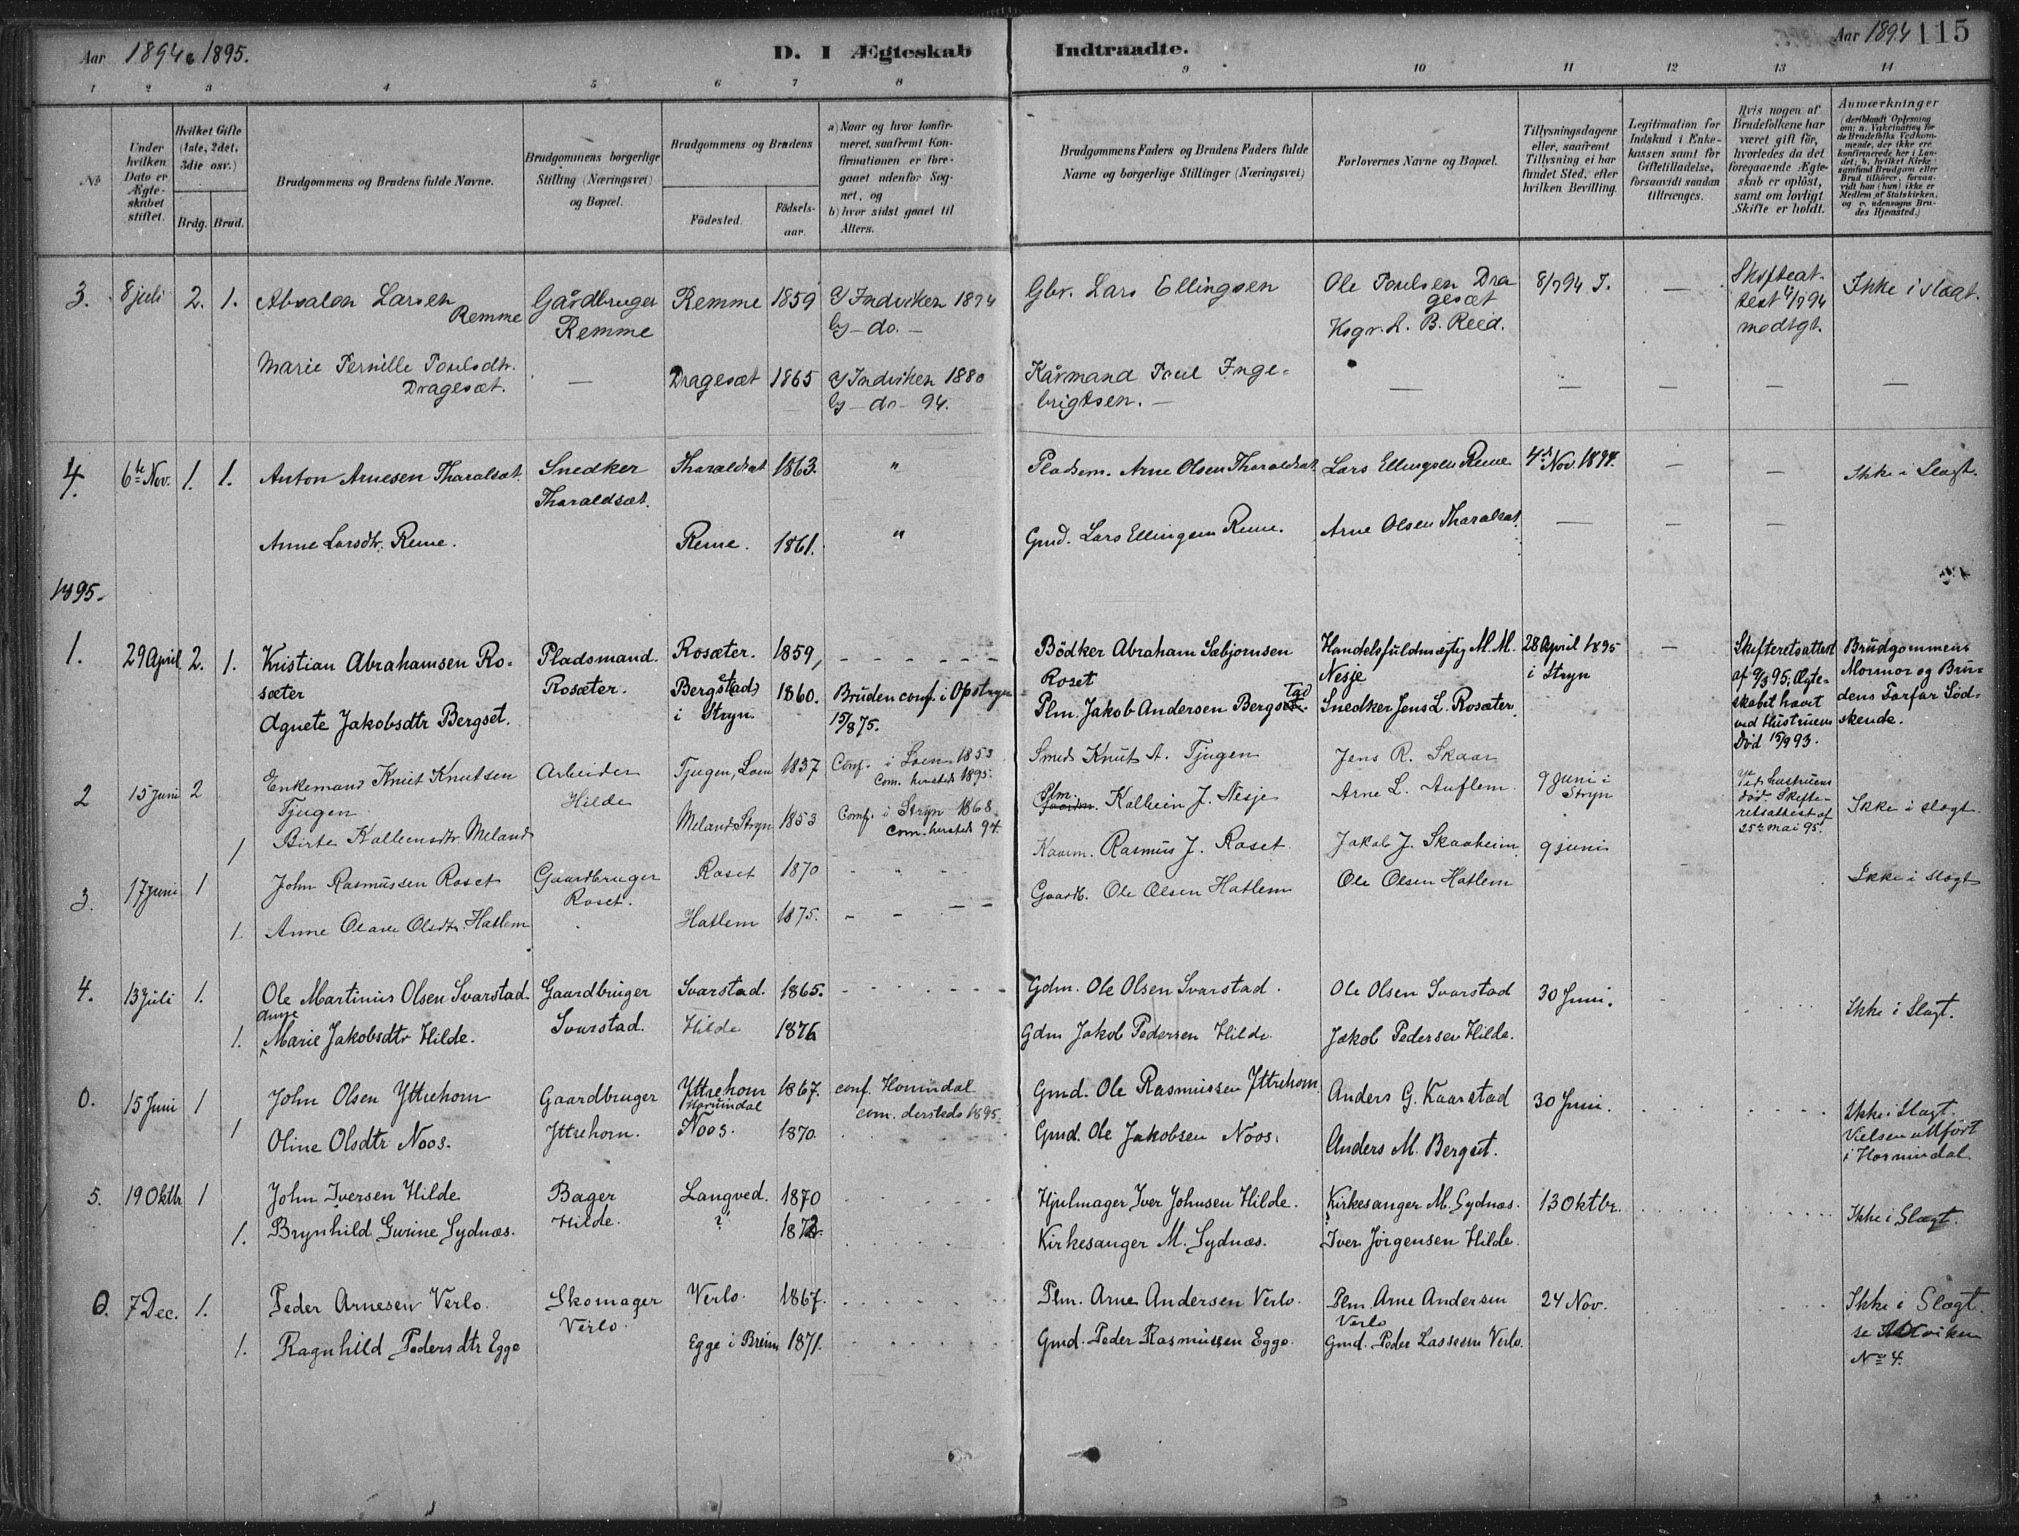 Aar 1894 & 1895.
D. I Ægteskab Indtraadte.
Aar 1894 115
1 2 3 4 5 6 7 8 9 10 11 12 13 14
No
Under hvilken Dato er Ægteskabet stiftet.
Hvilket Gifte (1ste, 2det, 3die osv.)
Brdg. Brud.
Brudgommens og Brudens fulde Navne.
Brudgommens borgerlige Stilling (Næringsvei) og Bopæl.
Brudgommens og Brudens
Fødested. Fødselsaar.
a) Naar og hvor konfirmeret, saafremt Konfirmationen er foregaaet udenfor Sognet, og
b) hvor sidst gaaet til Alters.
Brudgommens Faders og Brudens Faders fulde Navne og borgerlige Stillinger (Næringsvei)
Forlovernes Navne og Bopæl.
Tillysningsdagene eller, saafremt Tillysning ei har fundet Sted, efter hvilken Bevilling.
Legitimation for Indskud i Enkekassen samt for Giftetilladelse, forsaavidt saadan tiltrænges.
Hvis nogen af Brudefolkene har været gift før, hvorledes da det foregaaende Ægteskab er opløst, samt om lovligt Skifte er holdt.
Anmærkninger (deriblandt Oplysning om: a. Vaksination for de Brudefolks Vedkommende, der ikke ere konfirmerede her i Landet; b. hvilket Kirkesamfund Brudgom eller Brud tilhører, forsaavidt han (hun) ikke er Medlem af Statskirken, og c. udensogns Brudes Hjemsted.)
3. 8 juli 2. 1. Absalon Larsen Remme
Gårdbruger Remme
Remme 1859 a) Indviken 1874
b) - do. -
Gbr. Lars Ellingsen
Ole Poulsen Dragesæt
Ksgr. L. B. Reed.
8/7 94 I. —
Skifteattest 4/7 94 modtgt.
Ikke i slægt.
Marie Pernille Poulsdtr. Dragesæt.
— Dragesæt 1865 a) Indviken 1880
b) - do - 94.
Kårmand Poul Ingebrigtsen. —
— — — — —
4. 6te Nov. 1. 1. Anton Arnesen Tharalsæt.
Snedker Tharaldsæt.
Tharaldsæt 1863. "
Pladsem. Arne Olsen Tharaldsæt
Lars Ellingsen Reme
4de Nov. 1894. — —
Ikke i Slægt.
Anne Larsdtr. Reme.
Reme. 1861. "
Gmd. Lars Ellingsen Reme.
Arne Olsen Tharalsæt.
— — —
1895.
1. 29 April 2. 1. Kristian Abrahamsen Rosæter
Pladsmand. Rosæter.
Rosæter. 1859, - - - - - -
Bödker Abraham Sæbjørnsen Roset
Handelsfuldmægtig M. M. Nesje
28 April 1895 i Stryn —
Skifteretsattest af 9/3 95; Ægteskabet hævet ved Hustruens Död 15/9 93.
Brudgommens Mormor og Brudens Farfar Sødskende.
Agnete Jakobsdtr Bergset.
Bergstad i Stryn 1860. Bruden conf. i Opstryn 15/8 75.
Plm. Jakob Andersen Bergstad
Snedker Jens L. Rosæter.
2 15 Juni 2 Enkemand Knut Knutsen Tjugen
Arbeider Hilde
Tjugen, Loen 1837 Conf. i Loen 1853
Com. hersteds 1895.
Smed Knut A. Tjugen
Jens R. Skaar
9 Juni i Stryn
Ved hustruens död. Skifteretsattest af 25de mai 95.
Ikke i slægt
1 Birte Kallensdtr Meland
Meland Stryn 1853 Conf. i Stryn 1868
com. hersteds 94.
Plm. Kallein J. Nesje
Arne L. Auflem.
3. 17 juni 1 John Rasmussen Roset
Gaardbruger Roset.
Roset 1870 - - -
Kaarm. Rasmus J. Roset
Jakob J. Skaaheim
9 juni
Ikke i slægt
1. Anne Olave Olsdtr. Hatlem
Hatlem 1875. - - - -
Gaardb. Ole Olsen Hatlem
Ole Olsen Hatlem
4. 13 Juli 1. Ole Martinus Olsen Svarstad
Gaardbruger Svarstad.
Svarstad. 1865. - - - - - -
Gdm. Ole Olsen Svarstad.
Ole Olsen Svarstad
30 Juni.
Ikke i Slægt.
1. Marie Jakobsdtr Hilde.
Hilde 1876
Gdm Jakob Pedersen Hilde
Jakob Pedersen Hilde.
0. 15 Juni 1 John Olsen Yttrehorn
Gaardbruger Yttrehorn.
Yttrehorn Hornindal 1867. conf. Honindal
com. dersteds 1895.
Gmd. Ole Rasmussen Yttrehorn
Anders G. Kaarstad
30 Juni.
Ikke i Slægt. Vielsen utført i Hornindal
1 Oline Olsdtr Noos.
Noos. 1870.
Gmd. Ole Jakobsen Noos.
Anders M. Bergset.
5. 19 Oktbr 1 John Iversen Hilde
Bager Hilde.
Langved. 1870
Hjulmager Iver Johnsen Hilde.
Kirkesanger M. Sydnæs.
13 Oktbr.
Ikke i Slægt.
1. Brynhild Gurine Sydnæs.
? 1872.
Kirkesanger M. Sydnæs.
Iver Jørgensen Hilde.
0. 7 Dec. 1. Peder Arnesen Verlo.
Skomager Verlo.
Verlo. 1867.
Plm. Arne Andersen Verlo.
Plm. Arne Andersen Verlo
24 Nov.
Ikke i Slægt.
No 4.
1. Ragnhild Pedersdtr Egge
Egge i Breim 1871.
Gmd. Peder Rasmussen Egge.
Gmd. Peder Lassesen Verlo.